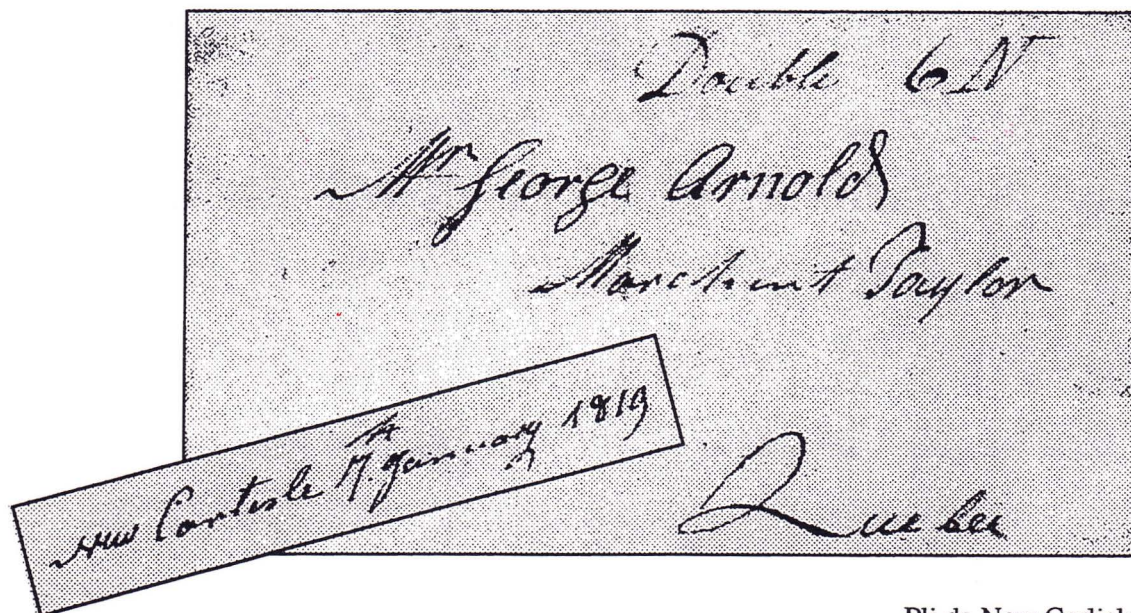 Double 6N
Mr George Arnold
Merchant Taylor
Quebec
New Carlisle 17th January 1819
Pli de New Carlisl